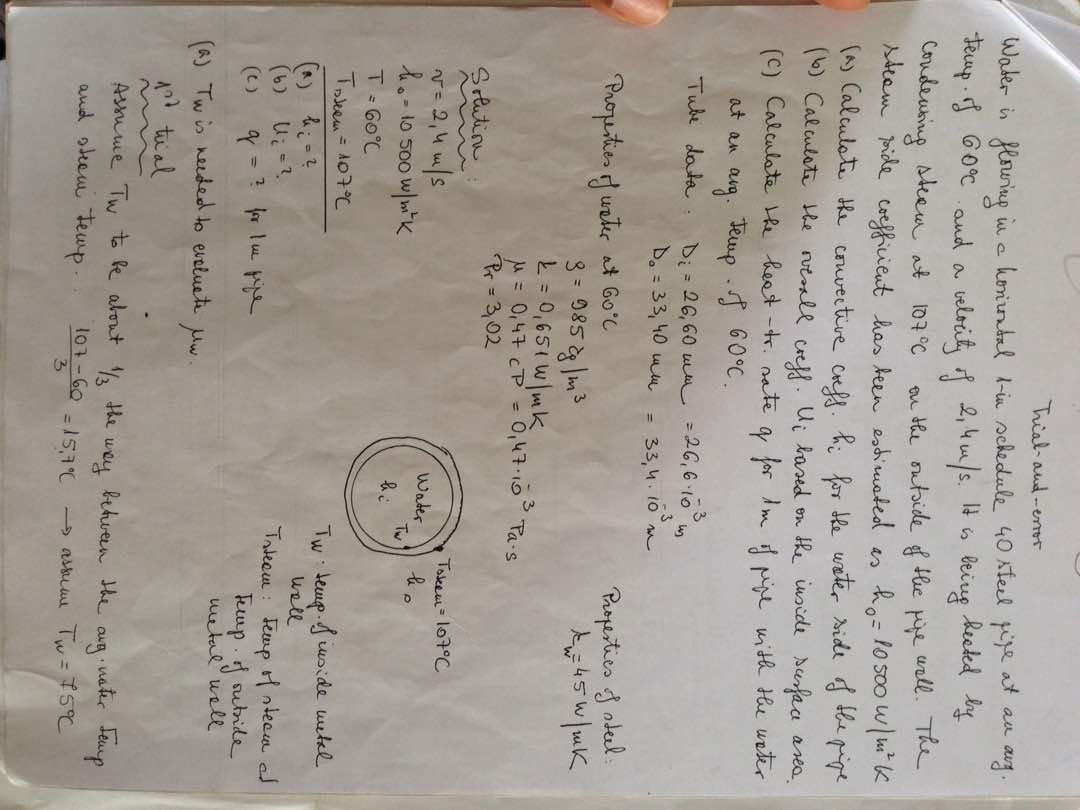 Trial-and-error
Water is flowing in a horizontal 1-in schedule 40 steel pipe at an avg.
temp. of 60°C and a velocity of 2,4 m/s. It is being heated by
condensing steam at 107°C on the outside of the pipe wall. The
steam side coefficient has been estimated as h₀ = 10500 W/m²K
(a) Calculate the convective coeff. hi for the water side of the pipe
(b) Calculate the overall coeff. Ui based on the inside surface area.
(c) Calculate the heat-tr. rate q for 1m of pipe with the water
at an avg. temp. of 60°C.
Tube data: Di = 26,60 mm = 26,6·10⁻³ m
D₀ = 33,40 mm = 33,4·10⁻³ m
Properties of steel:
kw = 45 W/mK
Properties of water at 60°C
ρ = 985 kg/m³
k = 0,651 W/mK
μ = 0,47 cP = 0,47·10⁻³ Pa·s
Pr = 3,02
Solution:
v = 2,4 m/s
h₀ = 10500 W/m²K
T = 60°C
Tsteam = 107°C
(a) hi = ?
(b) Ui = ?
(c) q = ? for 1m pipe
Water
hi Tw
Tsteam = 107°C
h₀
Tw: temp. of inside metal
wall
Tsteam: temp of steam at
temp. of outside
metal wall
(a) Tw is needed to evaluate μw.
1st trial
Assume Tw to be about 1/3 the way between the avg. water temp
and steam temp. (107-60)/3 = 15,7°C → assume Tw = 75°C